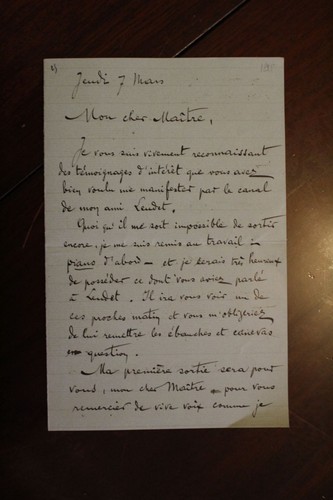 Jeudi 7 Mars
Mon cher Maître,
Je vous suis vivement reconnaissant
des témoignages d'intérêt que vous avez
bien voulu me manifester par le canal
de mon ami Leudet.
Quoi qu'il me soit impossible de sortir
encore, je me suis remis au travail in
piano d'abord — et je serais très heureux
de posséder ce dont vous aviez parlé
à Leudet. Il ira vous voir un de
ces prochés matin et vous m'obligeriez
de lui remettre les ébauches et canevas
question.
Ma première sortie sera pour
vous, mon cher Maître — pour vous
remercier de vive voix comme je